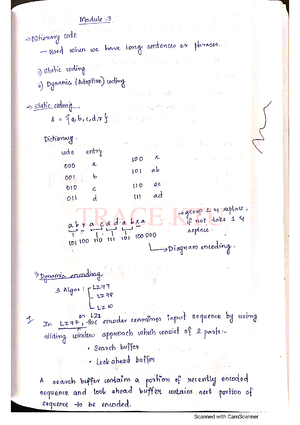 Module-3
→Dictionary code
— Used when we have long sentences or phrases.
i) Static coding
ii) Dynamic (Adaptive) coding
→ Static coding
A = {a,b,c,d,r}
Dictionary.
code entry
000 a 100 r
001 b 101 ab
010 c 110 ac
011 d 111 ad
TRACE KTU
→group 2 & replace,
if not take 1 &
replace
a b r a c a d a b r a
101 100 110 111 101 100 000
→Diagram encoding.
→Dynamic encoding
3 Algos: LZ77
LZ78
LZ
or LZ1
In LZ77, the encoder examines input sequence by using
sliding window approach which consist of 2 parts:-
• Search buffer
• Look ahead buffer
A search buffer contains a portion of recently encoded
sequence and look ahead buffer contains next portion of
sequence to be encoded.
Scanned with CamScanner